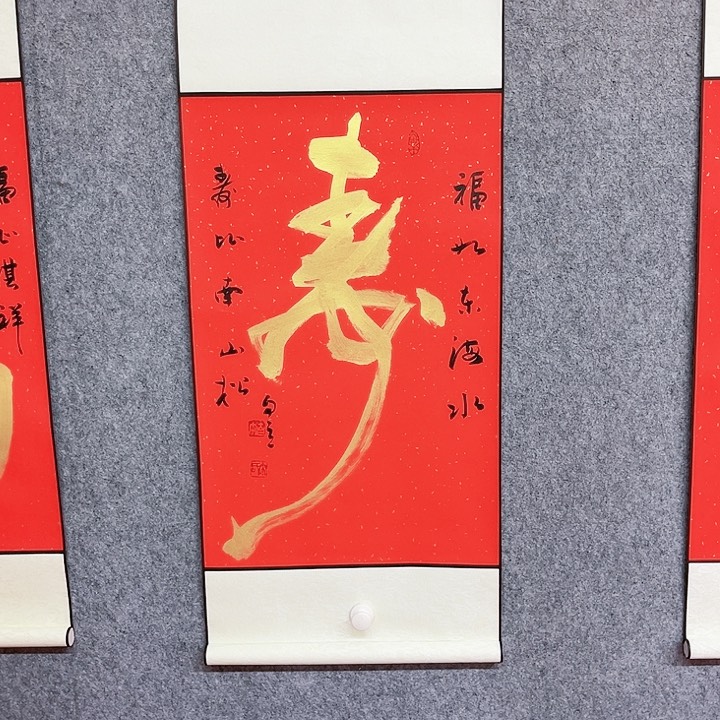 福如东海水
寿
寿比南山松
祺祥